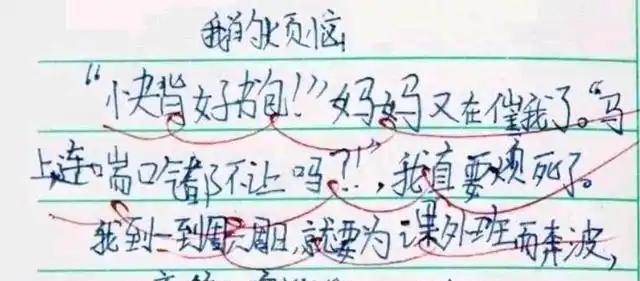 我的烦恼
“快背好书包!”妈妈又在催我了。“马
上,连喘口气都不让吗?!”,我真要烦死了。
我到一到周六周日,就要为课外班而奔波,